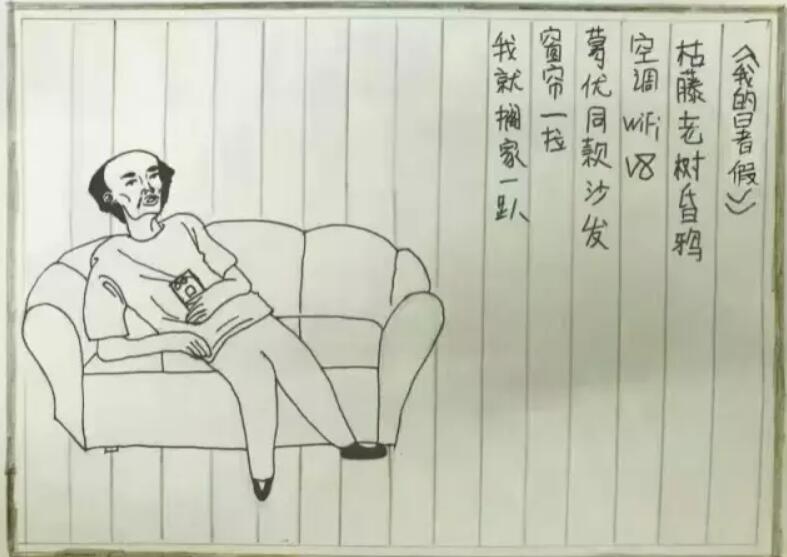 《我的暑假》
枯藤老树昏鸦
空调WiFi V8
葛优同款沙发
窗帘一拉
我就搁家一趴